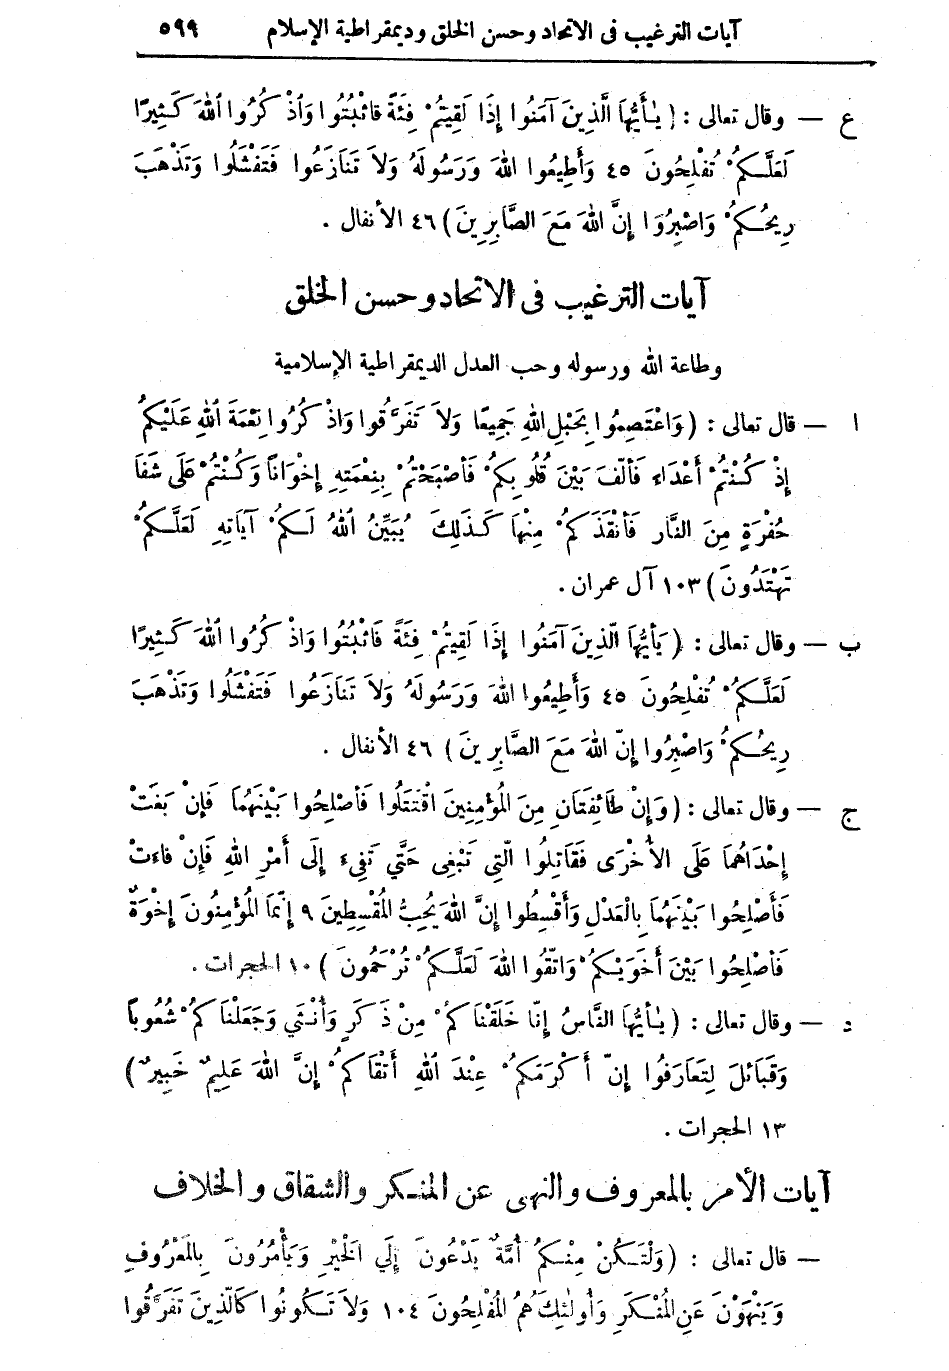 آيات الترغيب فى الاتحاد وحسن الخلق وديمقراطية الإسلام ٥٩٩
ع — وقال تعالى : ( يٰأَيُّهَا الَّذِينَ آمَنُوا إِذَا لَقِيتُمْ فِئَةً فَاثْبُتُوا وَاذْكُرُوا اللهَ كَثِيرًا
لَعَلَّكُمْ تُفْلِحُونَ ٤٥ وَأَطِيعُوا اللهَ وَرَسُولَهُ وَلاَ تَنَازَعُوا فَتَفْشَلُوا وَتَذْهَبَ
رِيحُكُمْ وَاصْبِرُوا إِنَّ اللهَ مَعَ الصَّابِرِينَ ) ٤٦ الأنفال .
آيات الترغيب فى الاتحاد وحسن الخلق
وطاعة الله ورسوله وحب العدل الديمقراطية الإسلامية
ا — قال تعالى : ( وَاعْتَصِمُوا بِحَبْلِ اللهِ جَمِيعًا وَلاَ تَفَرَّقُوا وَاذْكُرُوا نِعْمَةَ اللهِ عَلَيْكُمْ
إِذْ كُنْتُمْ أَعْدَاء فَأَلَّفَ بَيْنَ قُلُوبِكُمْ فَأَصْبَحْتُمْ بِنِعْمَتِهِ إِخْوَانًا وَكُنْتُمْ عَلَى شَفَا
حُفْرَةٍ مِنَ النَّارِ فَأَنْقَذَكُمْ مِنْهَا كَذَلِكَ يُبَيِّنُ اللهُ لَكُمْ آيَاتِهِ لَعَلَّكُمْ
تَهْتَدُونَ ) ١٠٣ آل عمران .
ب — وقال تعالى : ( يَأَيُّهَا الَّذِينَ آمَنُوا إِذَا لَقِيتُمْ فِئَةً فَاثْبُتُوا وَاذْكُرُوا اللهَ كَثِيرًا
لَعَلَّكُمْ تُفْلِحُونَ ٤٥ وَأَطِيعُوا اللهَ وَرَسُولَهُ وَلاَ تَنَازَعُوا فَتَفْشَلُوا وَتَذْهَبَ
رِيحُكُمْ وَاصْبِرُوا إِنَّ اللهَ مَعَ الصَّابِرِينَ ) ٤٦ الأنفال .
ج — وقال تعالى : ( وَإِنْ طَائِفَتَانِ مِنَ الْمُؤْمِنِينَ اقْتَتَلُوا فَأَصْلِحُوا بَيْنَهُمَا فَإِنْ بَغَتْ
إِحْدَاهُمَا عَلَى الأُخْرَى فَقَاتِلُوا الَّتِى تَبْغِى حَتَّى تَفِىءَ إِلَى أَمْرِ اللهِ فَإِنْ فَاءَتْ
فَأَصْلِحُوا بَيْنَهُمَا بِالْعَدْلِ وَأَقْسِطُوا إِنَّ اللهَ يُحِبُّ الْمُقْسِطِينَ ٩ إِنَّمَا الْمُؤْمِنُونَ إِخْوَةٌ
فَأَصْلِحُوا بَيْنَ أَخَوَيْكُمْ وَاتَّقُوا اللهَ لَعَلَّكُمْ تُرْحَمُونَ ) ١٠ الحجرات .
د — وقال تعالى : ( يٰأَيُّهَا النَّاسُ إِنَّا خَلَقْنَاكُمْ مِنْ ذَكَرٍ وَأُنْثَى وَجَعَلْنَاكُمْ شُعُوبًا
وَقَبَائِلَ لِتَعَارَفُوا إِنَّ أَكْرَمَكُمْ عِنْدَ اللهِ أَتْقَاكُمْ إِنَّ اللهَ عَلِيمٌ خَبِيرٌ )
١٣ الحجرات .
آيات الأمر بالمعروف والنهى عن المنكر والشقاق والخلاف
— قال تعالى : ( وَلْتَكُنْ مِنْكُمْ أُمَّةٌ يَدْعُونَ إِلَى الْخَيْرِ وَيَأْمُرُونَ بِالْمَعْرُوفِ
وَيَنْهَوْنَ عَنِ الْمُنْكَرِ وَأُولٰئِكَ هُمُ الْمُفْلِحُونَ ١٠٤ وَلاَ تَكُونُوا كَالَّذِينَ تَفَرَّقُوا